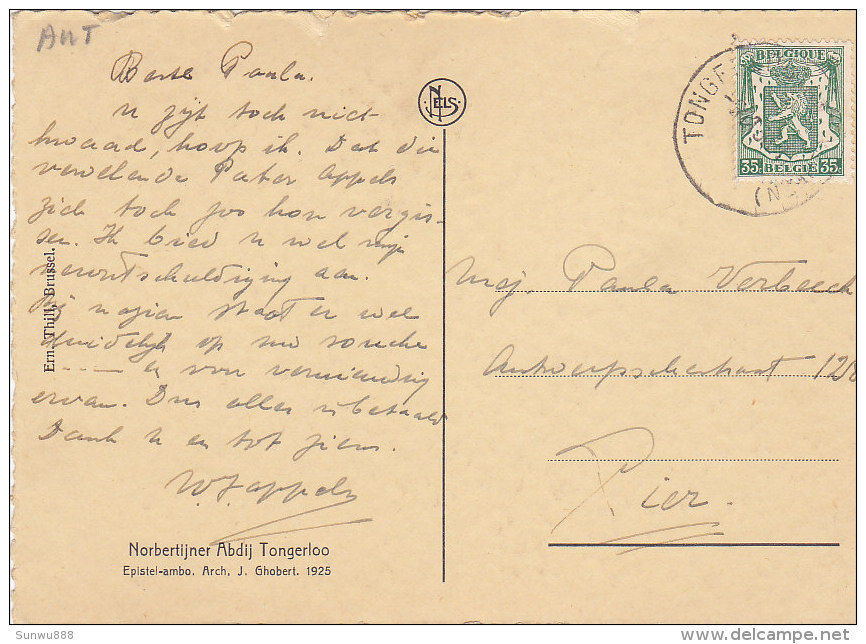 ANT
Beste Paula.
U zijt toch niet
kwaad, hoop ik. Dat die
vervelende Pater Appels
zich toch zoo kon vergis-
sen. Ik bied u wel mijn
verontschuldiging aan.
Bij nazien staat er wel
duidelijk op uw souche
en voor vernieuwing
ervan. Dus alles is betaald
Dank u en tot ziens.
W. J. Appels
Norbertijner Abdij Tongerloo
Epistel-ambo. Arch. J. Ghobert. 1925
Ern. Thill, Brussel.
NELS
TONGE
BELGIQUE
35c BELGIE 35c
Mej. Paula Verbeeck
Antwerpschestraat 128
Lier.
Sunwu888
delcampe.net